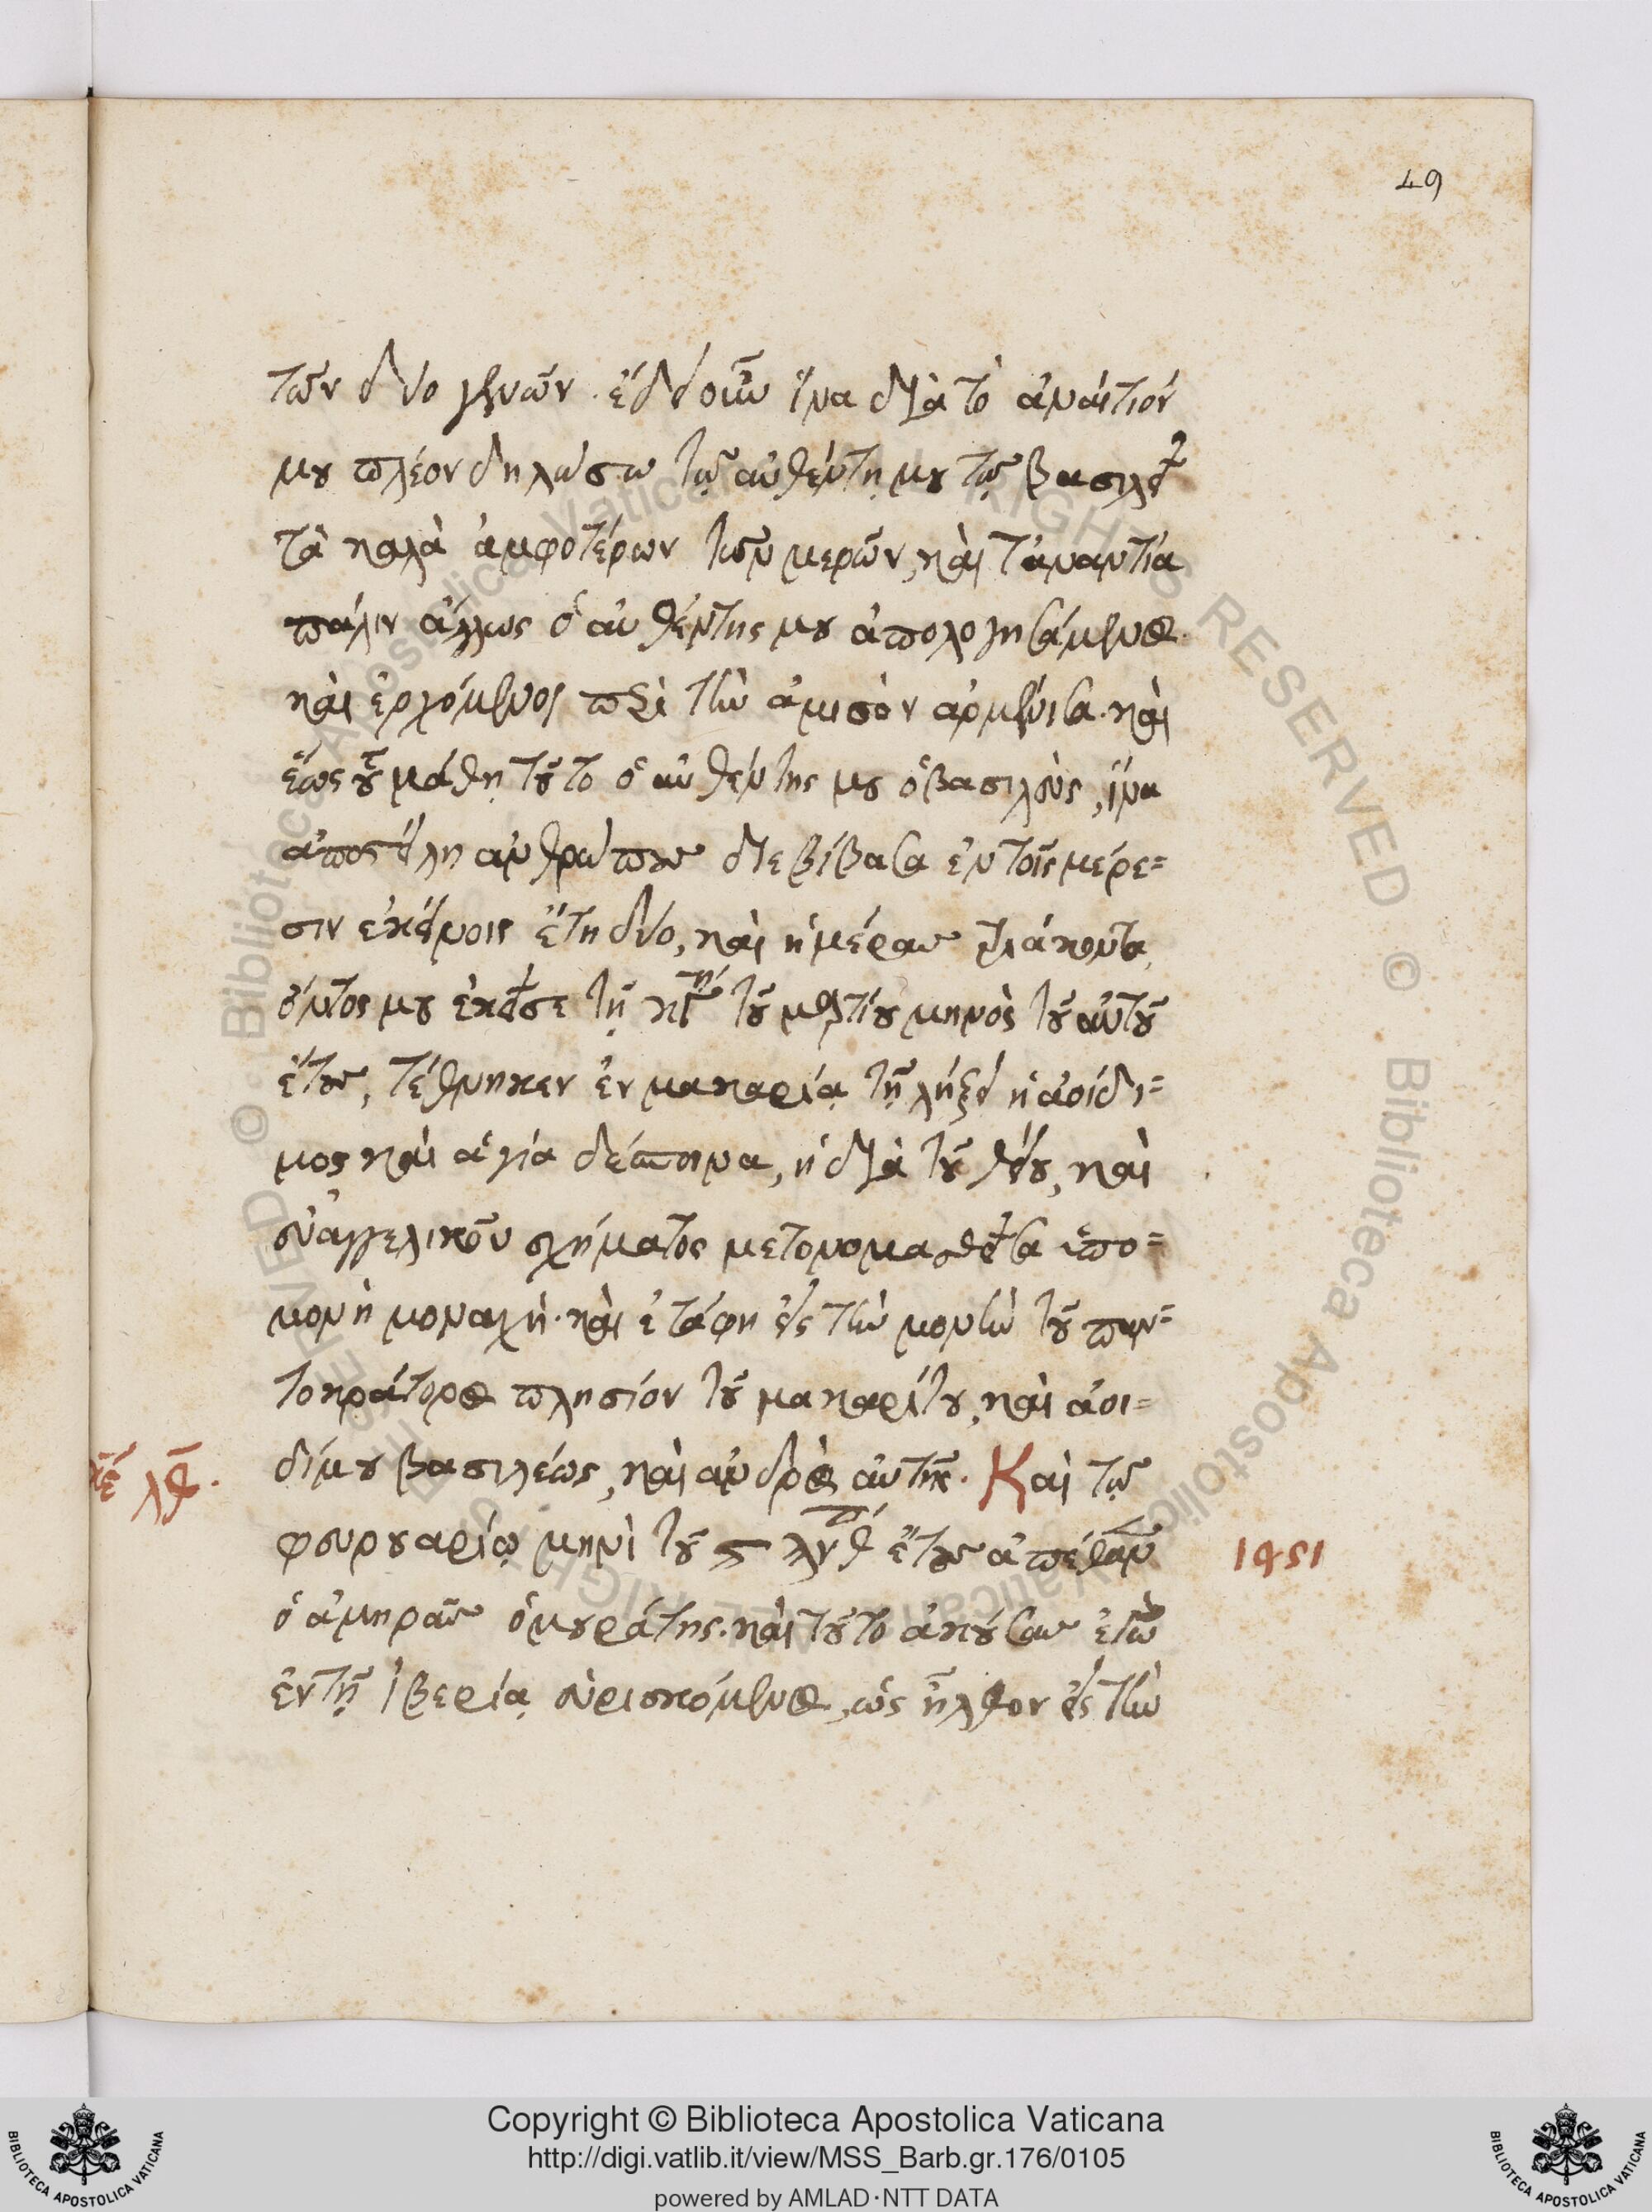 49
τῶν δύο γενῶν. ἔδει οὖν ἵνα διὰ τὸ ἀναίτιόν
μου πλέον δηλώσω τῷ αὐθέντῃ μου τῷ βασιλεῖ
τὰ καλὰ ἀμφοτέρων τῶν μερῶν, καὶ τἀναντία
πάλιν ἄλλως ὁ αὐθέντης μου ἀπολογησάμενος.
καὶ ἐρχόμενος περὶ τὴν ἀμισὸν ἀρμενίσα. καὶ
ἕως οὗ μάθῃ τοῦτο ὁ αὐθέντης μου ὁ βασιλεὺς, ἵνα
ἀποστείλῃ ἀνθρώπους διεβίβασα ἐν τοῖς μέρε=
σιν ἐκείνοις ἔτη δύο, καὶ ἡμέρας τριάκοντα,
ὄντος μου ἐκεῖσε τῇ κγῃ τοῦ μαρτίου μηνὸς τοῦ αὐτοῦ
ἔτους, τέθνηκεν ἐν μακαρίᾳ τῇ λήξει ἡ ἀοίδι=
μος καὶ ἁγία δέσποινα, ἡ διὰ τοῦ θείου, καὶ
εὐαγγελικοῦ σχήματος μετονομασθεῖσα ὑπο=
μονὴ μοναχή. καὶ ἐτάφη εἰς τὴν μονὴν τοῦ παν=
τοκράτορος πλησίον τοῦ μακαρίτου, καὶ ἀοι=
δίμου βασιλέως, καὶ ἀνδρὸς αὐτῆς. Καὶ τῷ
φευρουαρίῳ μηνὶ τοῦ ϛ λνθ ἔτους ἀπέθανεν
1451
ὁ ἀμηρᾶς ὁ μουράτης. καὶ τοῦτο ἀκούσας ἐγὼ
ἐν τῇ ἰβερίᾳ εὑρισκόμενος, ὡς ἦλθον εἰς τὴν
Copyright © Biblioteca Apostolica Vaticana
http://digi.vatlib.it/view/MSS_Barb.gr.176/0105
powered by AMLAD·NTT DATA
BIBLIOTECA APOSTOLICA VATICANA
BIBLIOTECA APOSTOLICA VATICANA